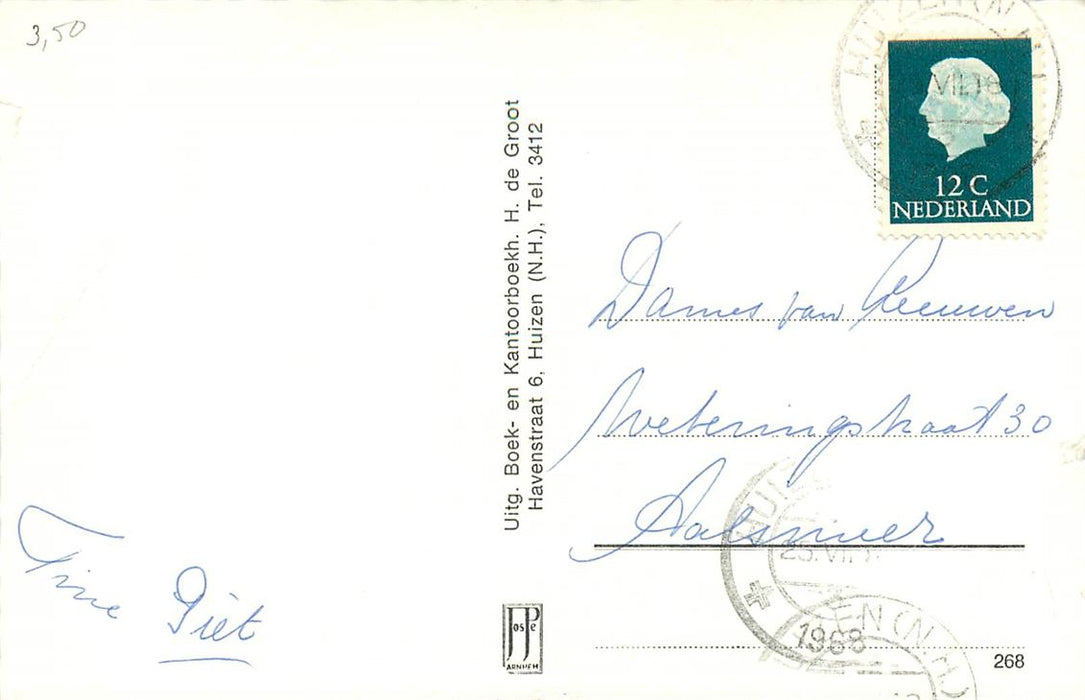 3,50
HUIZEN (N.H.)
12 C
NEDERLAND
Uitg. Boek- en Kantoorboekh. H. de Groot
Havenstraat 6, Huizen (N.H.), Tel. 3412
Dames van Leeuwen
Weteringstraat 30
Aalsmeer
Tine Piet
HUIZEN (N.H.)
25.VII
1968
JosPe
ARNHEM
268